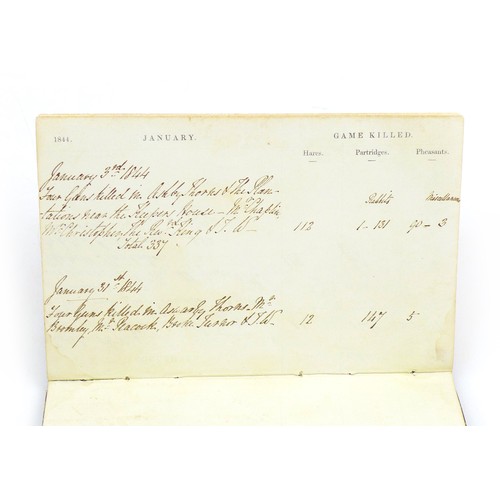 1844. JANUARY. GAME KILLED.
Hares. Partridges. Pheasants.
January 3rd 1844
Four Guns killed in Ashby Thorns & the Plan-
tations near the Keepers House - Mr Chaplin Rabbits Miscellaneous
Mr Christopher, The Revd King & T. W- 112 1 - 131 90 - 3
Total 337
January 31st 1844
Four Guns killed in Aswarby Thorns Mr
Bromley, Mr Peacock, Turner & T. W- 12 147 5